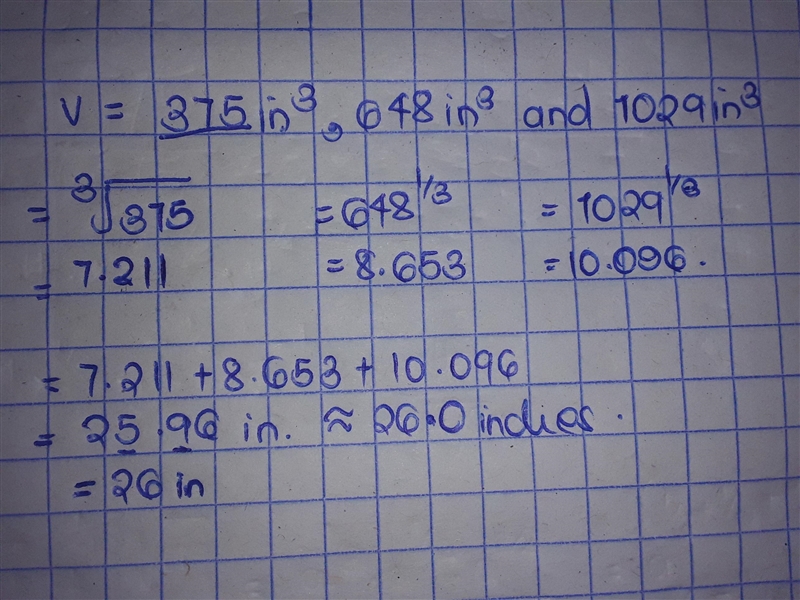 V = 375 in³, 648 in³ and 1029 in³
= ∛375 = 648^1/3 = 1029^1/3
= 7.211 = 8.653 = 10.096.
= 7.211 + 8.653 + 10.096
= 25.96 in. ≈ 26.0 inches.
= 26 in